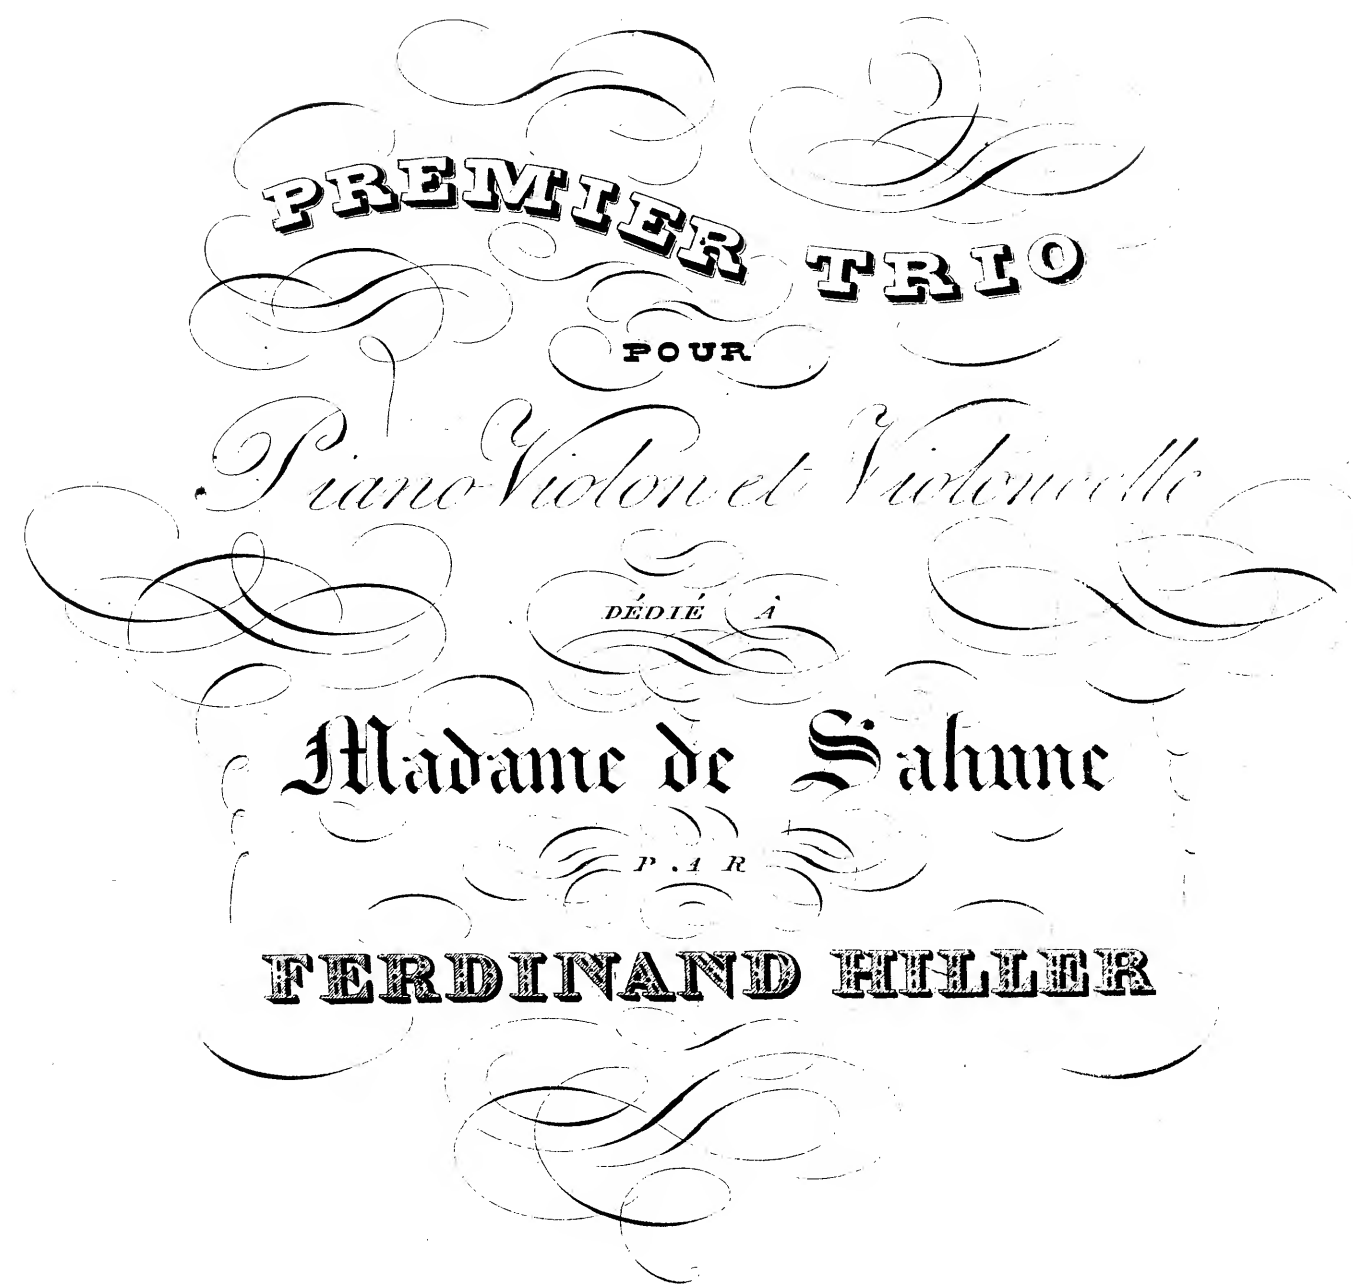 PREMIER TRIO
POUR
Piano Violon et Violoncelle
DÉDIÉ À
Madame de Sahune
PAR
FERDINAND HILLER